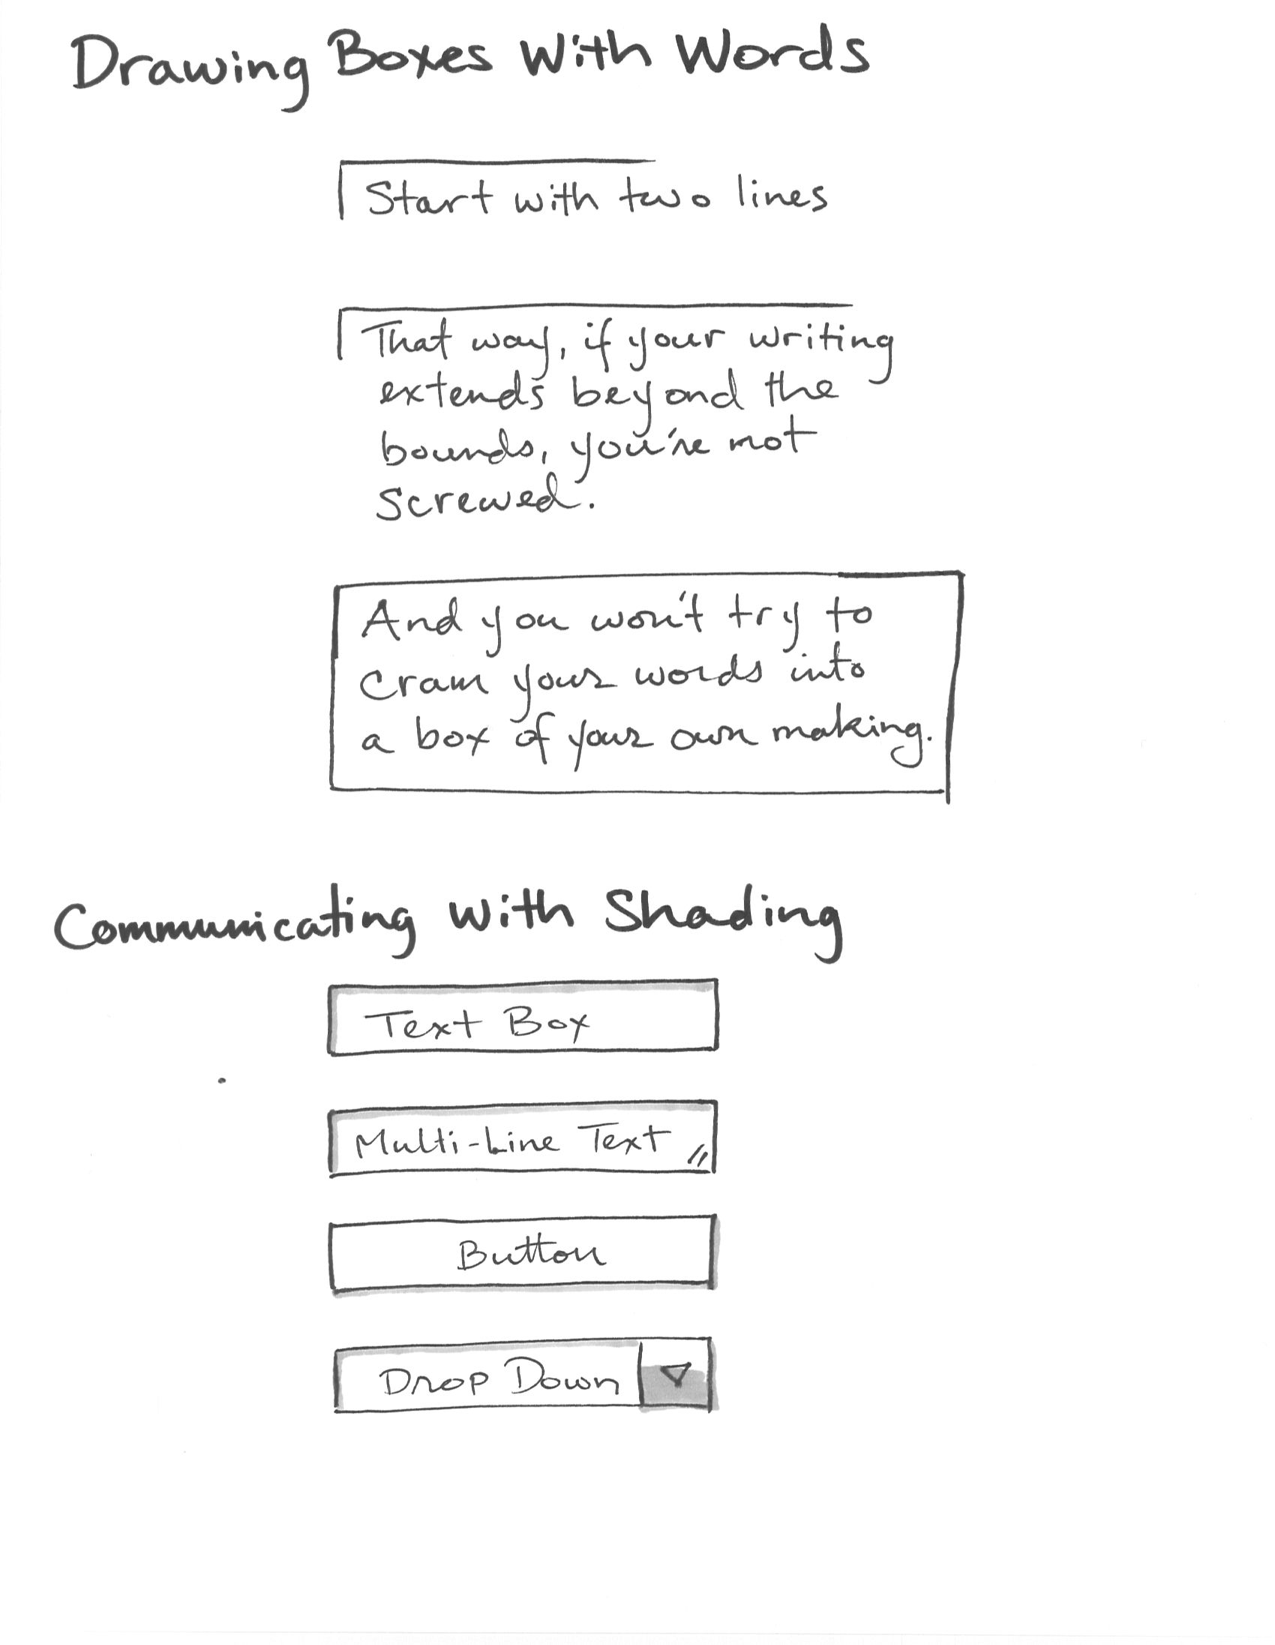 Drawing Boxes With Words
Start with two lines
That way, if your writing
extends beyond the
bounds, you're not
screwed.
And you won't try to
cram your words into
a box of your own making.
Communicating with Shading
Text Box
Multi-Line Text
Button
Drop Down